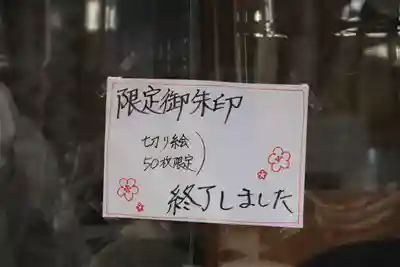 限定御朱印
切り絵
50枚限定)
終了しました